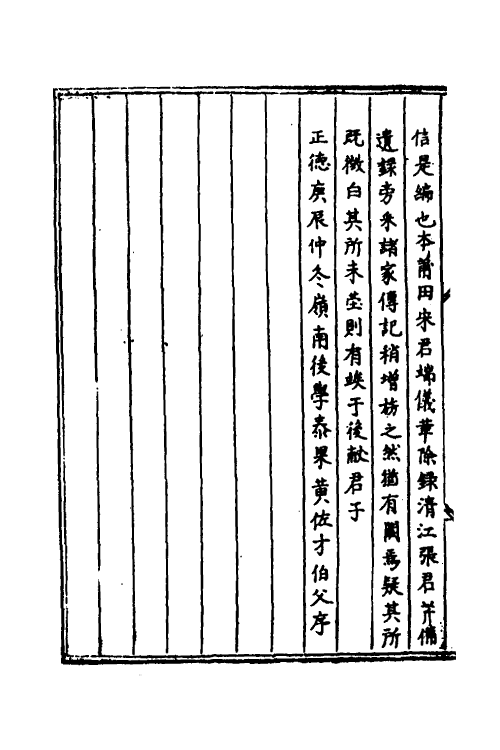 信是編也本莆田宋君端儀革除錄清江張君芹備
遺錄旁采諸家傳記稍增芟之然猶有闕焉疑其所
既徵白其所未瑩則有竢于後献君子
正德庚辰仲冬嶺南後學泰泉黄佐才伯父序